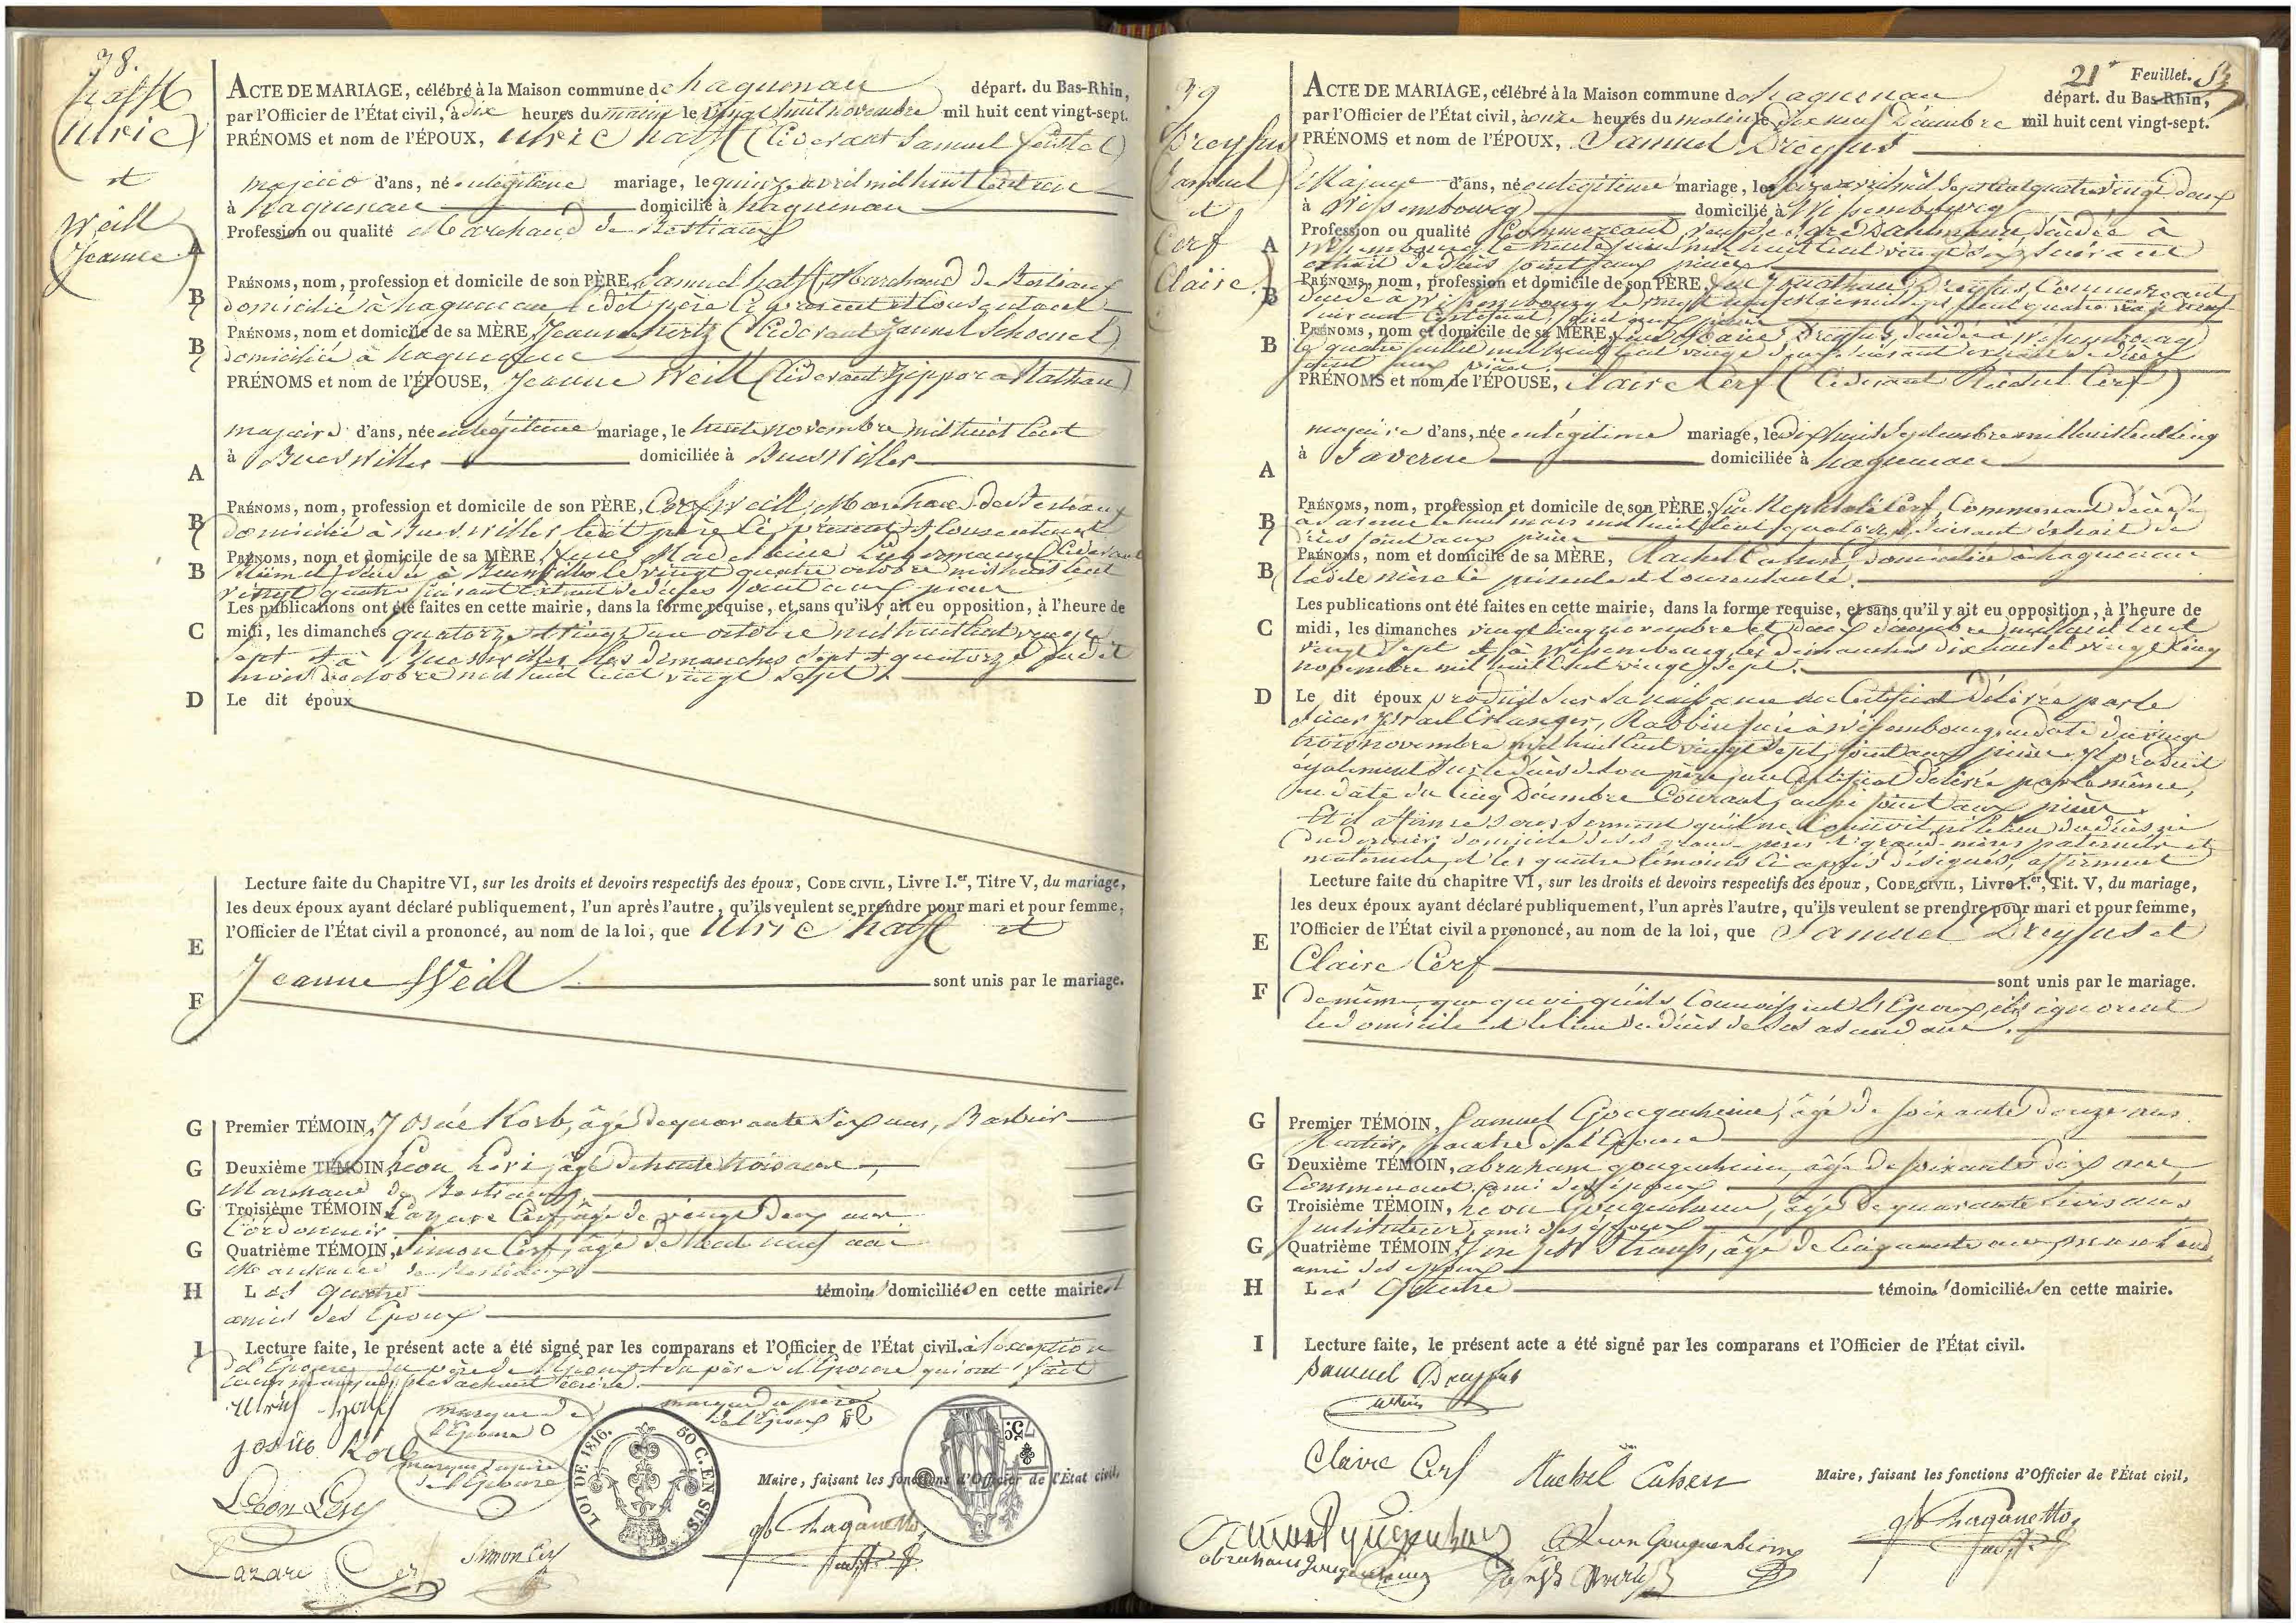 38.
hatff
Ulric
et
Weill
Jeanne
ACTE DE MARIAGE, célébré à la Maison commune de haguenau départ. du Bas-Rhin,
par l'Officier de l'État civil, à dix heures du matin le vingt huit novembre mil huit cent vingt-sept.
PRÉNOMS et nom de l'ÉPOUX, Ulric hatff (Cidevant Samuel
majeur d'ans, né en légitime mariage, le quinze avril mil huit Cent
à haguenau domicilié à haguenau
Profession ou qualité Marchand de Bestiaux
A
B PRÉNOMS, nom, profession et domicile de son PÈRE, Samuel hatff, Marchand de Bestiaux
domicilié à haguenau, ledit père Ci présent et Consentant
B PRÉNOMS, nom et domicile de sa MÈRE, Jeanne hertz (Cidevant
domiciliée à haguenau
PRÉNOMS et nom de l'ÉPOUSE, Jeanne Weill (Cidevant Zippora Nathan)
majeure d'ans, née en légitime mariage, le trente novembre mil huit Cent
à Bueswiller domiciliée à Bueswiller
A
B PRÉNOMS, nom, profession et domicile de son PÈRE, Cerf Weill, Marchand de Bestiaux
domicilié à Bueswiller ledit père Ci présent et Consentant
B PRÉNOMS, nom et domicile de sa MÈRE, feue Madeleine (Cidevant
décédée à Bueswiller le vingt quatre octobre mil huit Cent
vingt quatre suivant Extrait de décès joint aux pièces
Les publications ont été faites en cette mairie, dans la forme requise, et sans qu'il y ait eu opposition, à l'heure de
C midi, les dimanches quatorze et vingt un octobre mil huit Cent vingt
sept et à Bueswiller les dimanches sept et quatorze dudit
mois d'octobre mil huit Cent vingt sept.
D Le dit époux
Lecture faite du Chapitre VI, sur les droits et devoirs respectifs des époux, CODE CIVIL, Livre I.er, Titre V, du mariage,
les deux époux ayant déclaré publiquement, l'un après l'autre, qu'ils veulent se prendre pour mari et pour femme,
l'Officier de l'État civil a prononcé, au nom de la loi, que Ulric hatff et
E
Jeanne Weill sont unis par le mariage.
F
G Premier TÉMOIN, Josué Korb, âgé de quarante six ans, Barbier
G Deuxième TÉMOIN, Léon Levi, âgé de trente trois ans,
Marchand de Bestiaux
G Troisième TÉMOIN Lazare Cerf, âgé de vingt deux ans
Cordonnier
G Quatrième TÉMOIN, Simon Cerf, âgé de neuf ans
Marchand de Bestiaux
H Les quatre témoins domiciliés en cette mairie et
amis des Epoux
I Lecture faite, le présent acte a été signé par les comparans et l'Officier de l'État civil. à l'exception
de l'Epouse, du père de l'Epoux et du père de l'Epouse qui ont fait
leurs marques, ne sachant écrire.
marque de
l'Epouse O
marque du père
de l'Epoux
josué Korb
marque du père
de l'Epouse
LOI DE 1816.
50 C. EN SUS.
75c
Maire, faisant les fonctions d'Officier de l'État civil,
Léon Levy
Lazare Cerf
Simon Cerf
39
Dreyfus
Samuel
et
Cerf
Claire
21e Feuillet.
ACTE DE MARIAGE, célébré à la Maison commune de haguenau départ. du Bas-Rhin,
par l'Officier de l'État civil, à onze heures du matin le dix neuf Décembre mil huit cent vingt-sept.
PRÉNOMS et nom de l'ÉPOUX, Samuel Dreyfus
Majeur d'ans, né en légitime mariage, le avril mil sept cent quatre vingt deux
à Wissembourg domicilié à Wissembourg
Profession ou qualité Commerçant, veuf de décédée à
A Wissembourg le trente mil huit Cent vingt six suivant
extrait de décès joint aux pièces
B PRÉNOMS, nom, profession et domicile de son PÈRE, feu Jonathan Dreyfus, Commerçant
décédé à Wissembourg le vingt mil sept Cent quatre vingt neuf
suivant Certificat joint aux pièces
B PRÉNOMS, nom et domicile de sa MÈRE, feue Dreyfus, décédée à Wissembourg
le quatre juillet mil huit Cent vingt suivant extrait de décès
joint aux pièces.
PRÉNOMS et nom de l'ÉPOUSE, Claire Cerf (Cidevant Cerf)
majeure d'ans, née en légitime mariage, le dix huit Septembre mil huit Cent Cinq
à Saverne domiciliée à haguenau
A
B PRÉNOMS, nom, profession et domicile de son PÈRE, feu Nephtalie Cerf, Commerçant décédé
à Saverne le huit mars mil huit Cent quatorze suivant extrait de
décès joint aux pièces
B PRÉNOMS, nom et domicile de sa MÈRE, Rachel Cahen, domiciliée à haguenau
ladite mère Ci présente et Consentante.
Les publications ont été faites en cette mairie, dans la forme requise, et sans qu'il y ait eu opposition, à l'heure de
C midi, les dimanches vingt Cinq novembre et deux décembre mil huit Cent
vingt Sept et à Wissembourg les dimanches dix huit et vingt Cinq
novembre mil huit Cent vingt Sept.
D Le dit époux produit sur sa naissance un Certificat délivré par le
Sieur Israel Erlanger, Rabbin juif à Wissembourg en date du vingt
trois novembre mil huit Cent vingt Sept joint aux pièces, et produit
également sur le décès de son père, un Certificat délivré par le même,
en date du Cinq Décembre Courant, aussi joint aux pièces.
Et il affirme sous serment qu'il ne Connoit ni le lieu du décès ni
du dernier domicile de ses grands-pères et grand-mères paternels et
maternels, et les quatre témoins Ci après désignés, affirment
Lecture faite du chapitre VI, sur les droits et devoirs respectifs des époux, CODE CIVIL, Livre I.er, Tit. V, du mariage,
les deux époux ayant déclaré publiquement, l'un après l'autre, qu'ils veulent se prendre pour mari et pour femme,
l'Officier de l'État civil a prononcé, au nom de la loi, que Samuel Dreyfus et
E
Claire Cerf sont unis par le mariage.
F de même, que quoi qu'ils Connoissent l'Epoux, ils ignorent
le domicile et le lieu de décès de ses ascendans.
G Premier TÉMOIN, Samuel Gougenheim, âgé de soixante douze ans
Rentier, de l'Epouse
G Deuxième TÉMOIN, abraham gougenheim, âgé de soixante dix ans,
Commerçant, ami des époux
G Troisième TÉMOIN, Léon Gougenheim, âgé de quarante trois ans
Instituteur, ami des époux
G Quatrième TÉMOIN, Joseph âgé de Cinquante ans marchand
ami des époux
H Les Quatre témoins domiciliés en cette mairie.
I Lecture faite, le présent acte a été signé par les comparans et l'Officier de l'État civil.
Samuel Dreyfus
Claire Cerf
Rachel Cahen
Maire, faisant les fonctions d'Officier de l'État civil,
Léon Gougenheim
abraham gougenheim